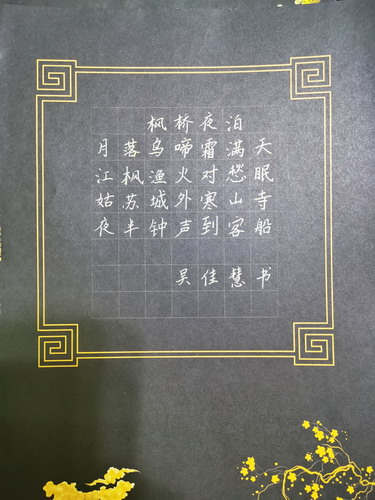 枫桥夜泊
月落乌啼霜满天
江枫渔火对愁眠
姑苏城外寒山寺
夜半钟声到客船
吴佳慧书